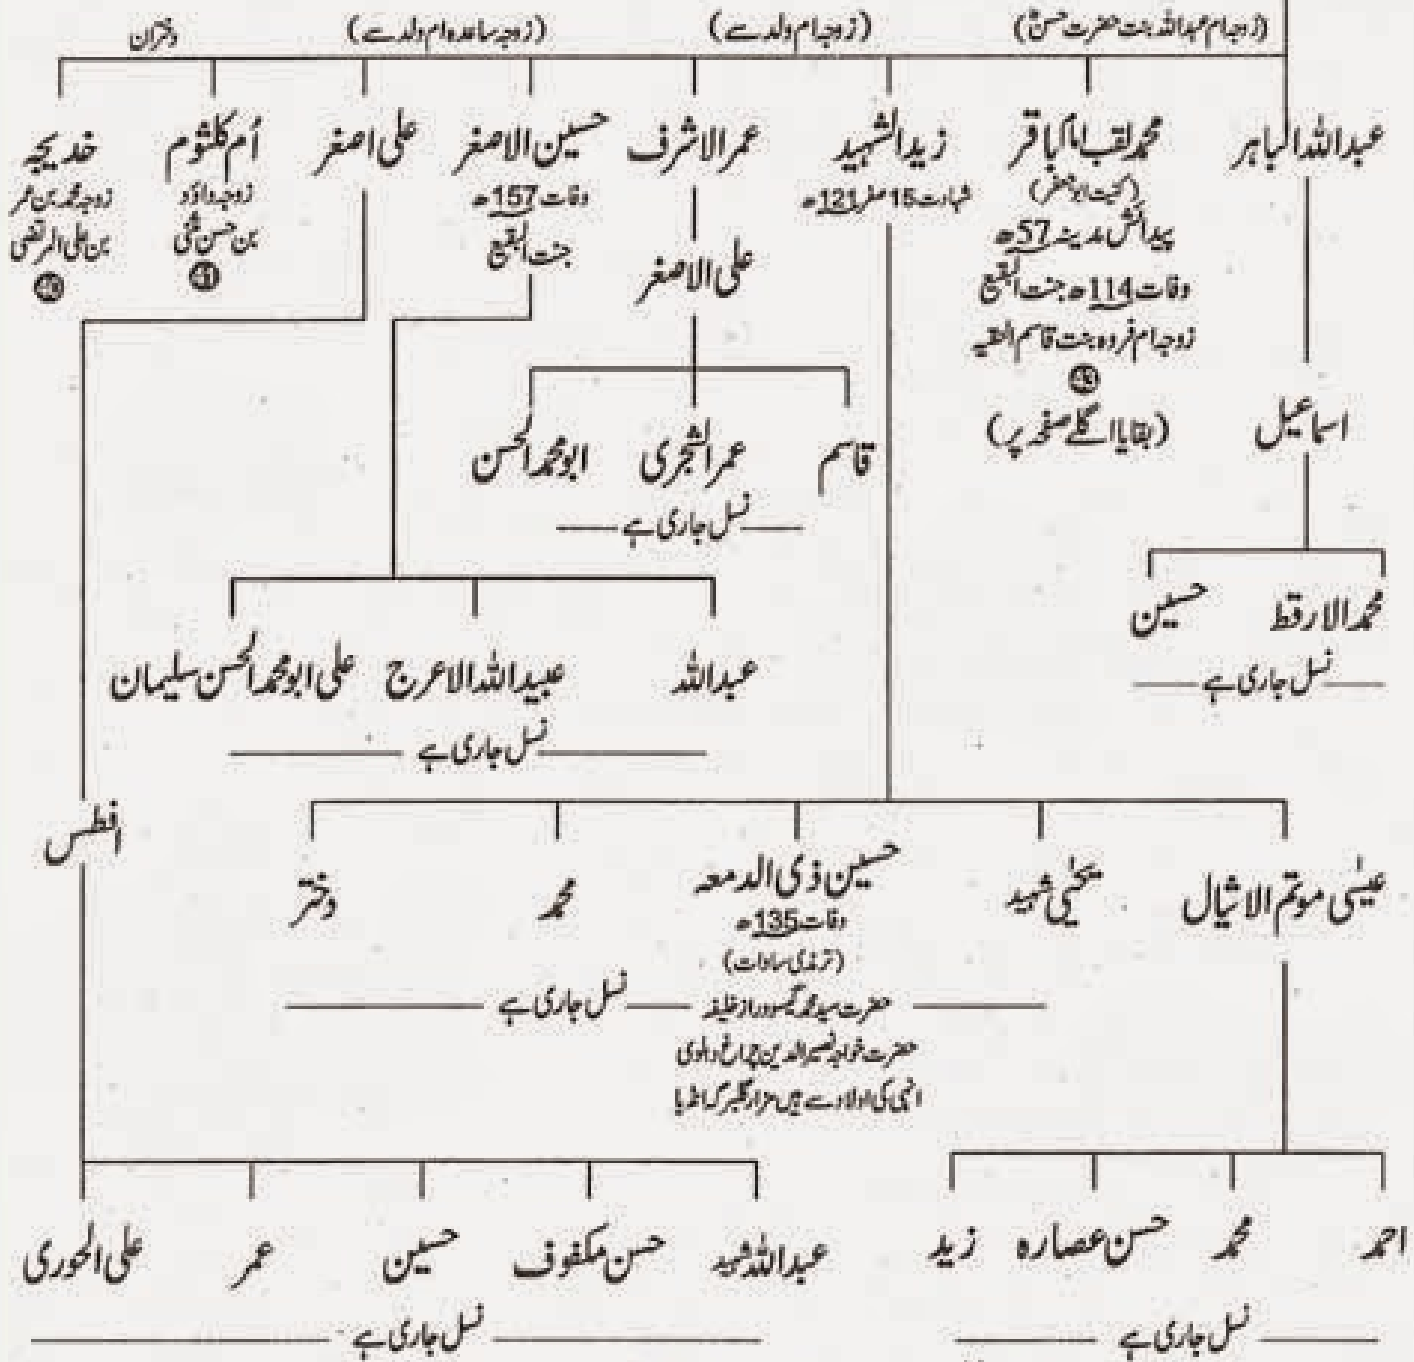 (زوجہ ام عبداللہ بنت حضرت حسنؓ)
(زوجہ ام ولد سے)
(زوجہ ساعدہ ام ولد سے)
دختران
عبداللہ الباہر
محمد لقب امام باقر
(کنیت ابو جعفر)
پیدائش مدینہ 57ھ
وفات 114ھ جنت البقیع
زوجہ ام فروہ بنت قاسم الفقیہ
(بقایا اگلے صفحہ پر)
زید الشہید
شہادت 15 صفر 121ھ
عمر الاشرف
حسین الاصغر
وفات 157ھ
جنت البقیع
علی اصغر
اُم کلثوم
زوجہ داؤد
بن حسن مثنی
خدیجہ
زوجہ محمد بن عمر
بن علی المرتضی
علی الاصغر
اسماعیل
قاسم
عمر الشجری
ابو محمد الحسن
نسل جاری ہے
محمد الارقط
حسین
نسل جاری ہے
عبداللہ
عبید اللہ الاعرج
علی ابو محمد الحسن سلیمان
نسل جاری ہے
افطس
عیسٰی موتم الاثبال
یحیٰی شہید
حسین ذی الدمعہ
وفات 135ھ
(ترمذی سادات)
حضرت سید محمد گیسودراز خلیفہ
حضرت خواجہ نصیر الدین چراغ دہلوی
انہی کی اولاد سے ہیں مزار گلبرگہ انڈیا
محمد
دختر
نسل جاری ہے
احمد
محمد
حسن عصارہ
زید
نسل جاری ہے
عبداللہ شہید
حسن مکفوف
حسین
عمر
علی الحوری
نسل جاری ہے